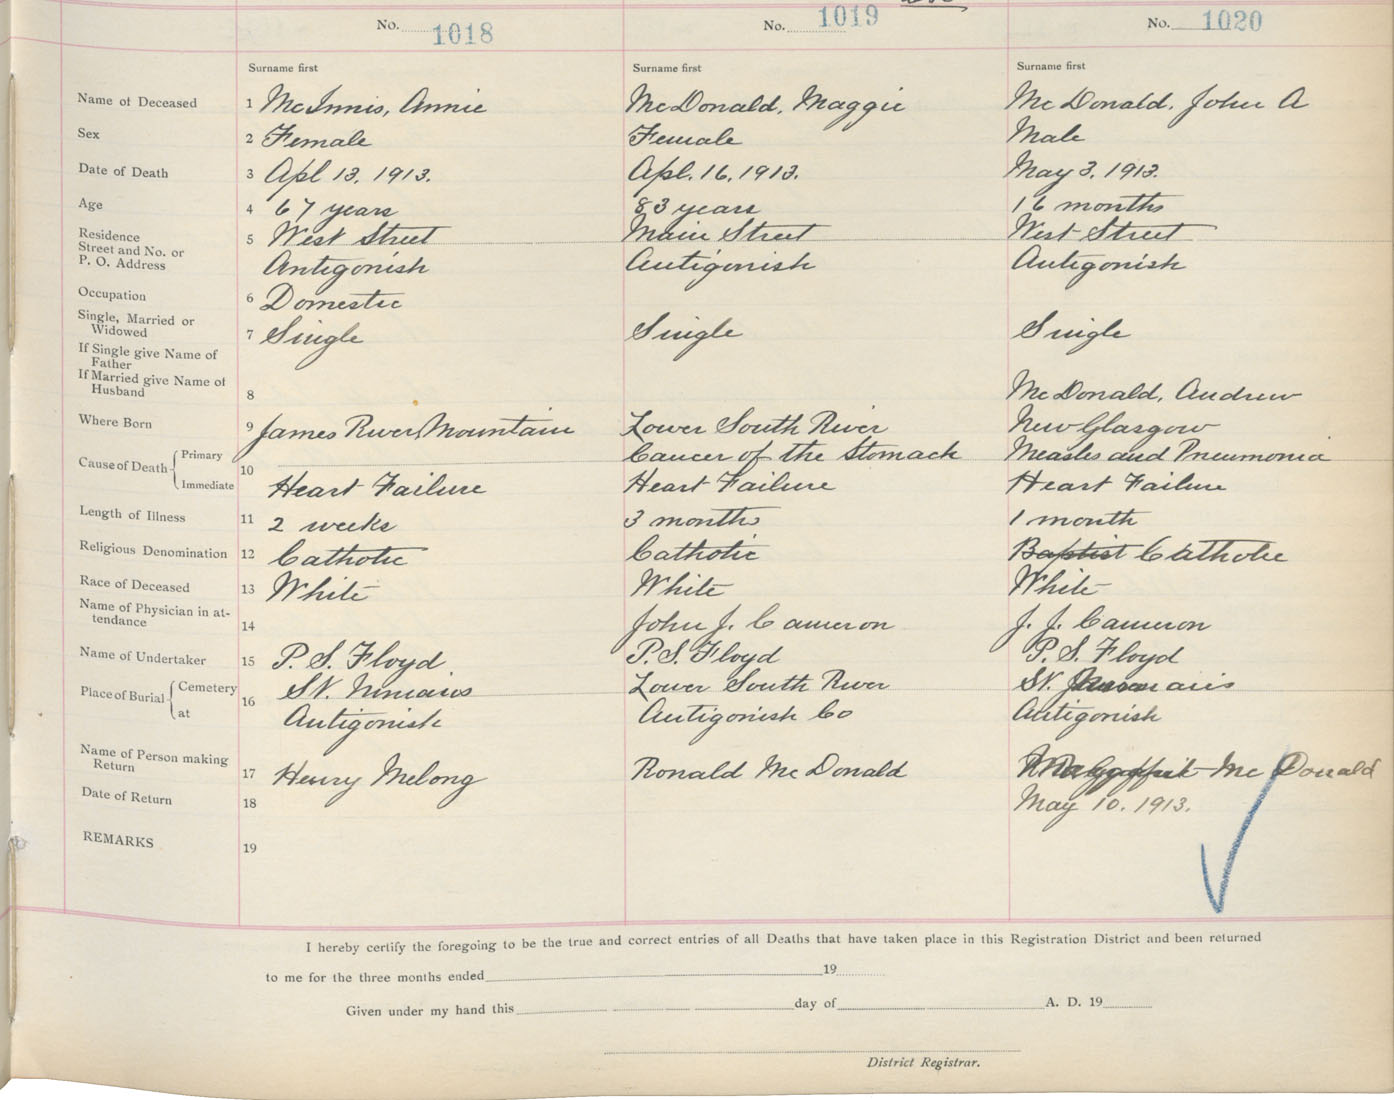 No. 1018 No. 1019 No. 1020
Surname first Surname first Surname first
Name of Deceased 1 McInnis, Annie McDonald, Maggie McDonald, John A
Sex 2 Female Female Male
Date of Death 3 Apl 13, 1913. Apl. 16, 1913. May 3, 1913.
Age 4 67 years 83 years 16 months
Residence 5 West Street Main Street West Street
Street and No. or
P. O. Address Antigonish Antigonish Antigonish
Occupation 6 Domestic
Single, Married or
Widowed 7 Single Single Single
If Single give Name of
Father
If Married give Name of
Husband 8 McDonald, Andrew
Where Born 9 James River Mountain Lower South River New Glasgow
Cause of Death Primary 10 Cancer of the Stomach Measles and Pneumonia
Immediate Heart Failure Heart Failure Heart Failure
Length of Illness 11 2 weeks 3 months 1 month
Religious Denomination 12 Catholic Catholic Baptist Catholic
Race of Deceased 13 White White White
Name of Physician in at-
tendance 14 John J. Cameron J. J. Cameron
Name of Undertaker 15 P. S. Floyd P. S. Floyd P. S. Floyd
Place of Burial Cemetery 16 St. Ninians Lower South River St.
at Antigonish Antigonish Co Antigonish
Name of Person making
Return 17 Henry Melong Ronald McDonald McDonald
Date of Return 18 May 10. 1913.
REMARKS 19
I hereby certify the foregoing to be the true and correct entries of all Deaths that have taken place in this Registration District and been returned
to me for the three months ended 19
Given under my hand this day of A. D. 19
District Registrar.